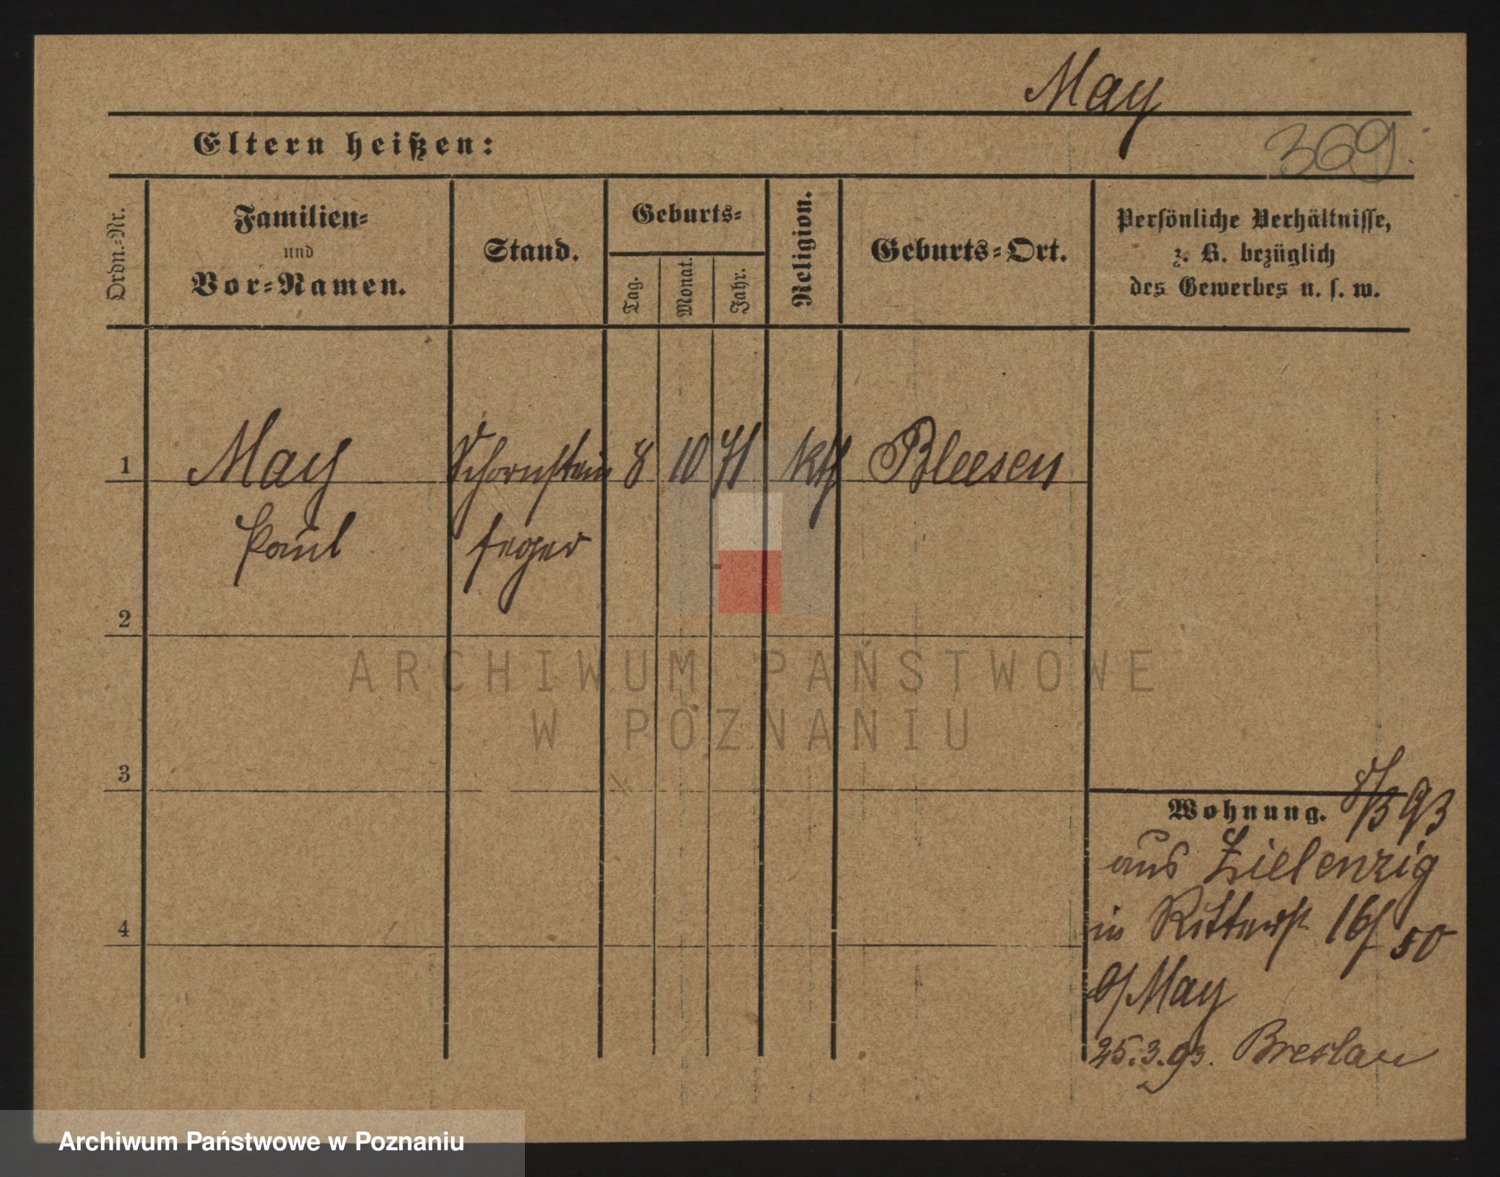 May
Eltern heißen:
369.
Ordn.-Nr.
Familien-
und
Vor-Namen.
Stand.
Geburts-
Tag.
Monat.
Jahr.
Religion.
Geburts-Ort.
Persönliche Verhältnisse,
z. B. bezüglich
des Gewerbes u. s. w.
1
May
Schornstein
8
10
71
kth
Bleesen
Paul
feger
2
ARCHIWUM PAŃSTWOWE
W POZNANIU
3
Wohnung.
8/3 93
aus Zielenzig
in Ritterst 16/50
b/ May
25.3.93. Breslau
4
Archiwum Państwowe w Poznaniu